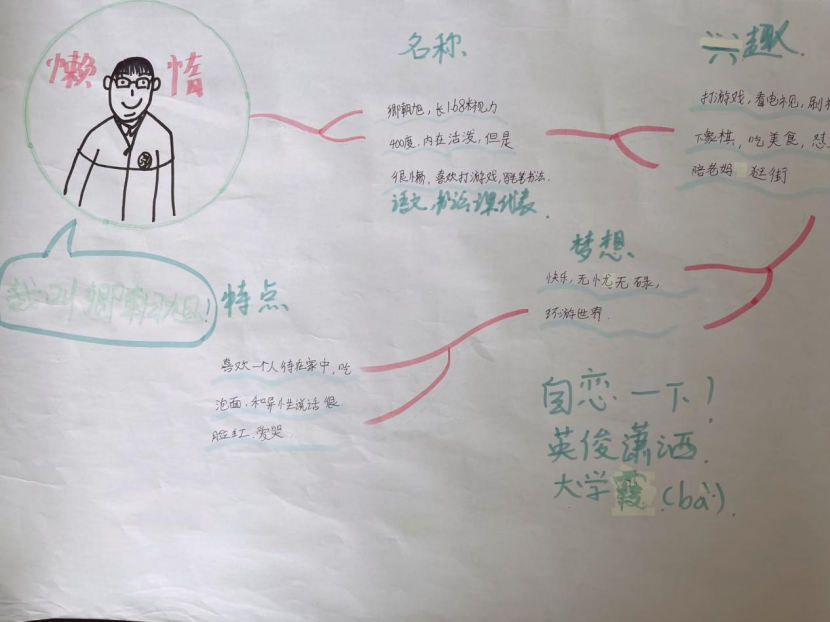 懒 惰
名称
卿朝旭，长168米视力
400度，内在活泼，但是
很懒、喜欢打游戏，写毛笔书法.
语文,书法课代表.
兴趣
打游戏，看电视，刷
下象棋，吃美食，怼
陪老妈 逛街
我叫卿朝旭！
梦想
快乐，无忧无碌，
环游世界.
特点
喜欢一个人待在家中，吃
泡面、和异性说话很
脸红、爱哭
自恋一下！
英俊潇洒.
大学霞(bà).